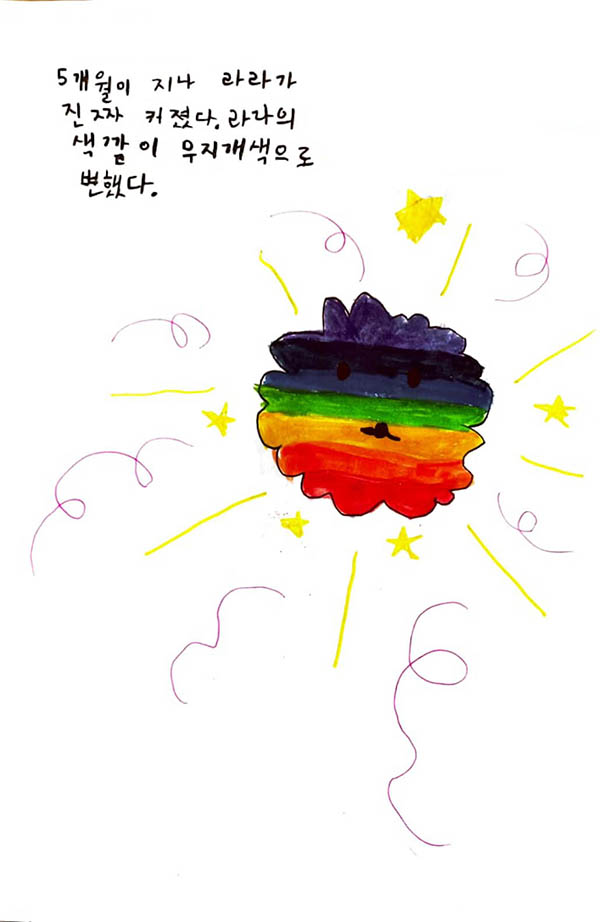 5개월이 지나 라라가
진짜 커졌다. 라라의
색깔이 무지개색으로
변했다.